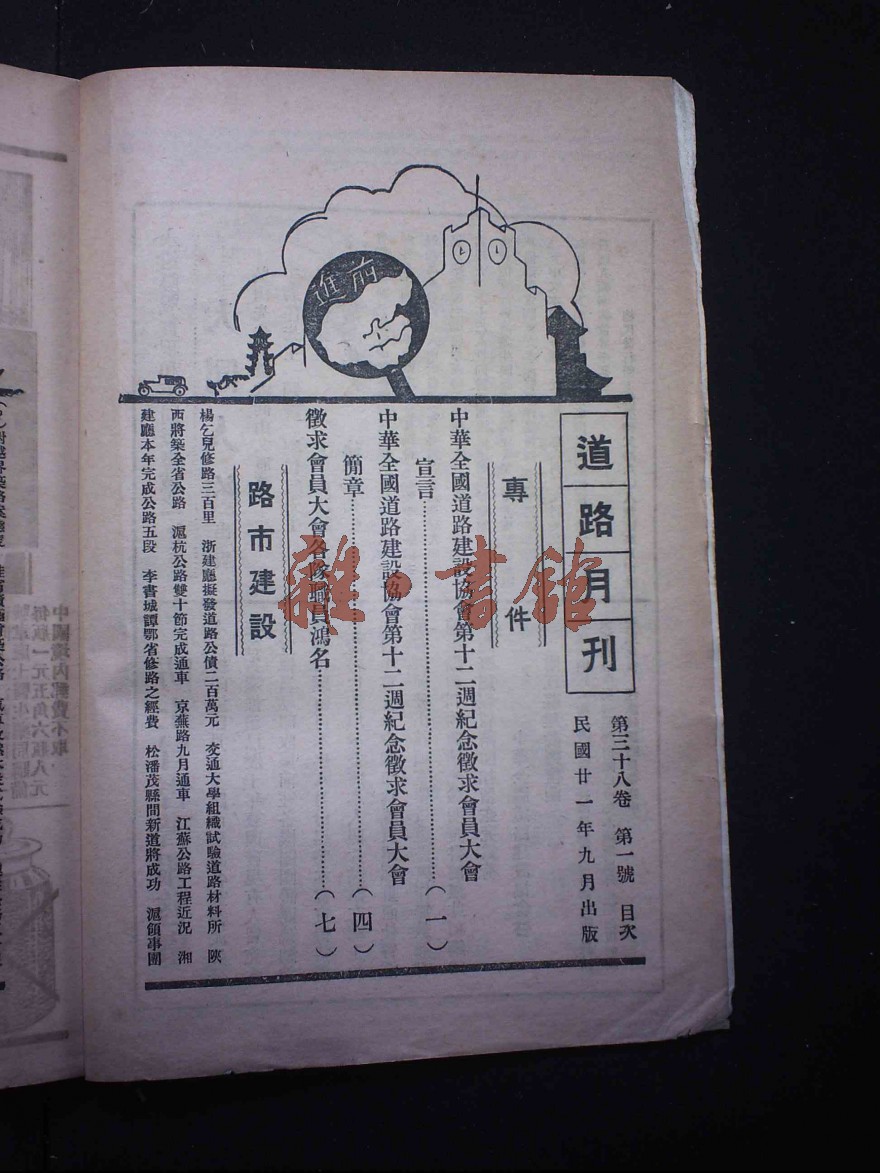 前進
道路月刊
第三十八卷 第一號 目次
民國廿一年九月出版
專件
中華全國道路建設協會第十二週紀念徵求會員大會
宣言……(一)
中華全國道路建設協會第十二週紀念徵求會員大會
簡章……(四)
徵求會員大會各隊職員鴻名……(七)
路市建設
楊乞兒修路三百里 浙建廳擬發道路公債二百萬元 交通大學組織試驗道路材料所 陝
西將築全省公路 滬杭公路雙十節完成通車 京蕪路九月通車 江蘇公路工程近況 湘
建廳本年完成公路五段 李書城譚鄂省修路之經費 松潘茂縣間新道將成功 滬領事團
雜·書館